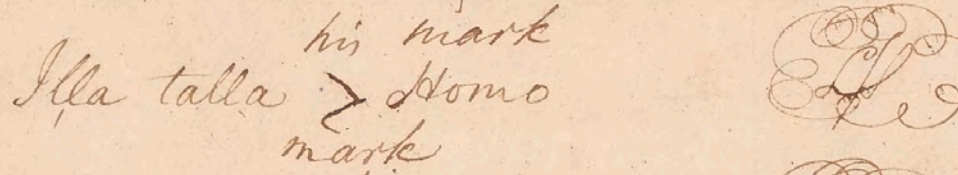 his mark
Illa talla > Homo LS
mark